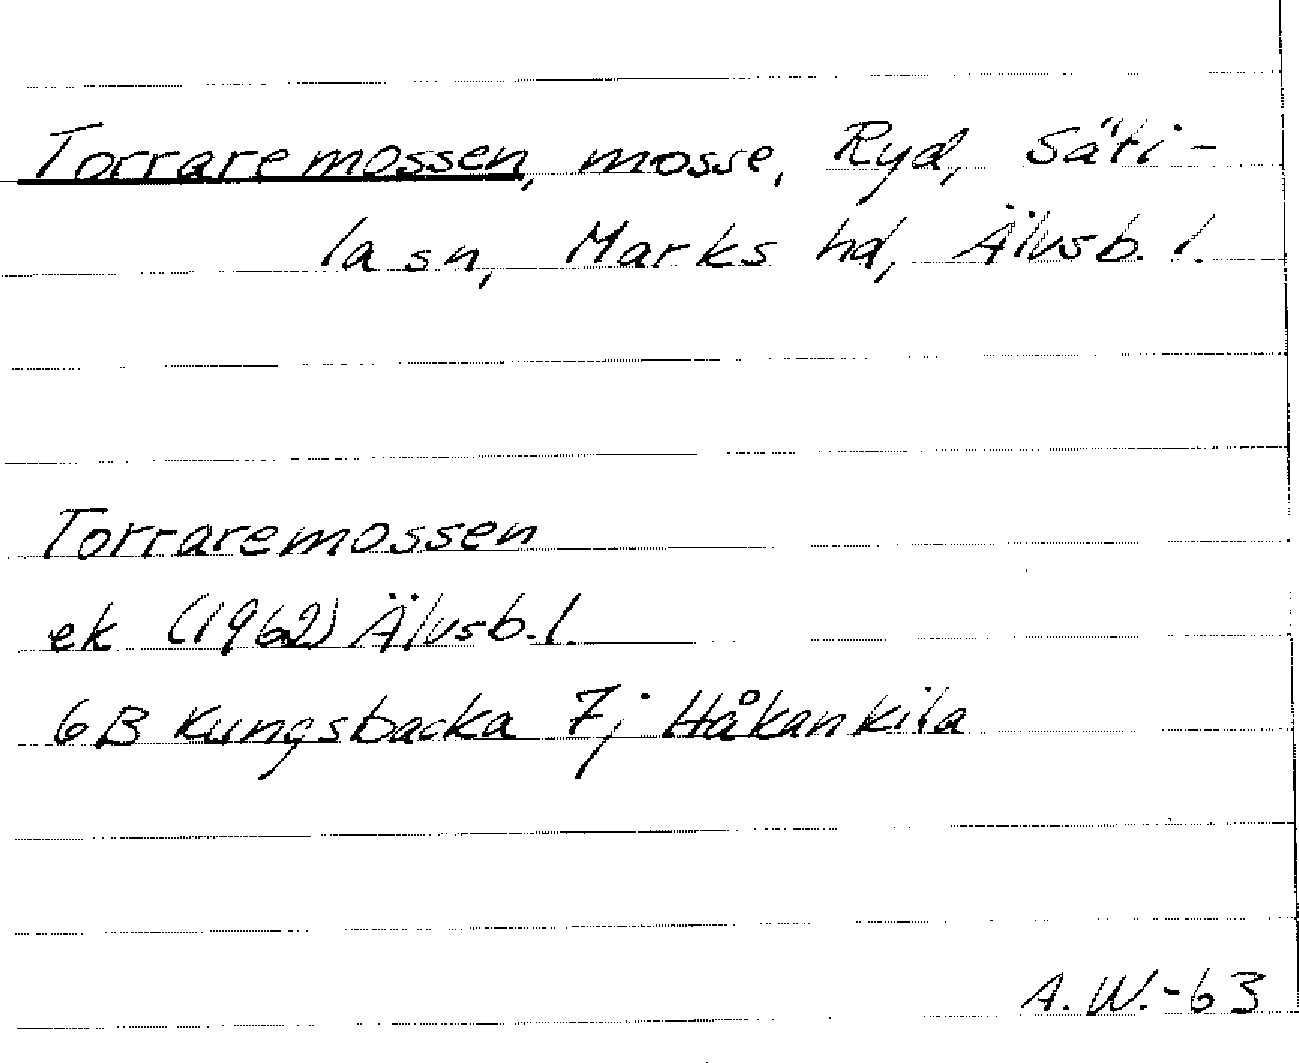 Torraremossen, mosse, Ryd, Säti-
la sn, Marks hd, Älvsb. l.
Torraremossen
ek (1962) Älvsb. l.
6B Kungsbacka 7j Håkankila
A. W. - 63